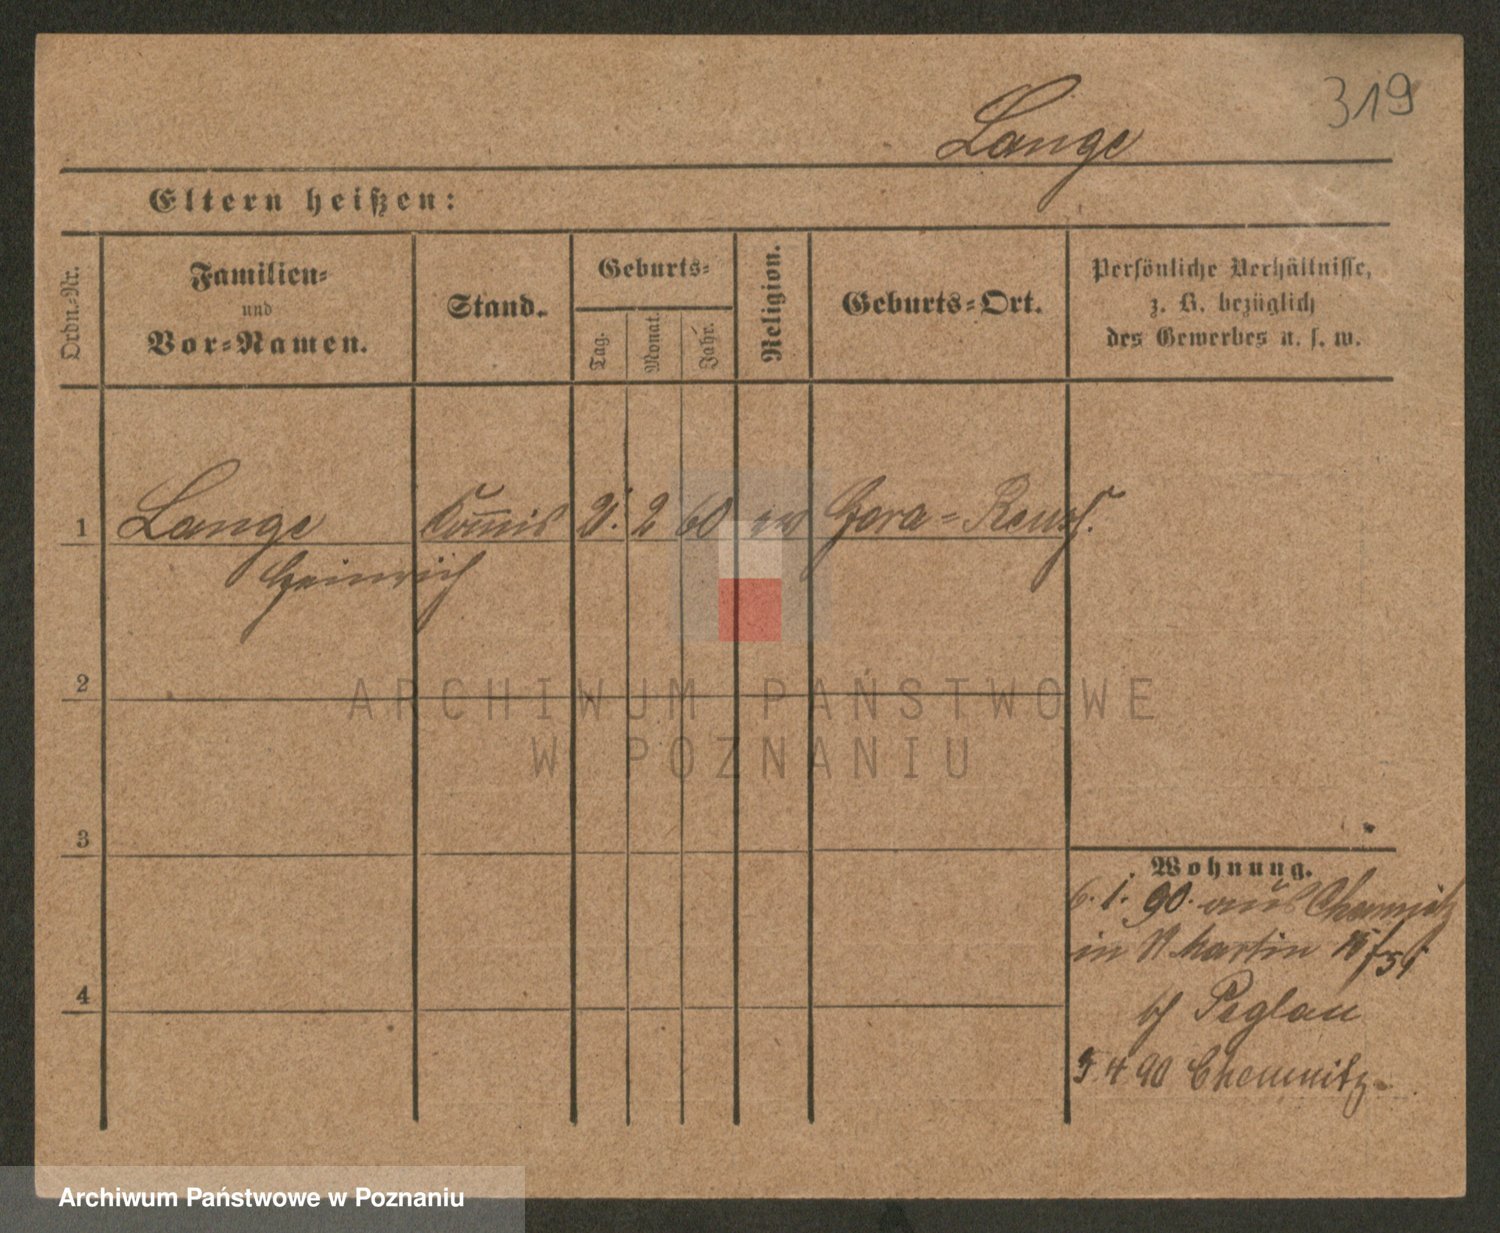 319
Lange
Eltern heißen:
Ordn.-Nr.
Familien-
und
Vor-Namen.
Stand.
Geburts-
Tag.
Monat.
Jahr.
Religion.
Geburts-Ort.
Persönliche Verhältnisse,
z. B. bezüglich
des Gewerbes u. s. w.
1 Lange Kom̅is 2 60 ev Gera-Reuß.
Heinrich
2
3
4
Wohnung.
6. 1. 90. aus Chemnitz
in St Martin
bei Peglau
4 90 Chemnitz
ARCHIWUM PAŃSTWOWE
W POZNANIU
Archiwum Państwowe w Poznaniu